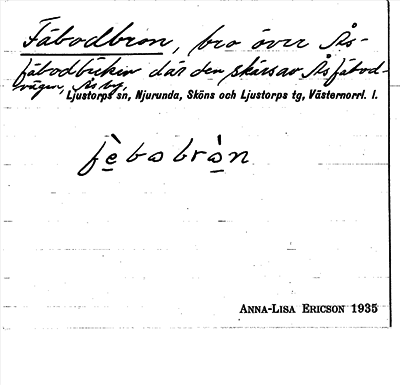 Fäbodbron, bro över Ås-
fäbodbäcken där den skäres av Åsfäbod-
vägen, Ås by,
Ljustorps sn, Njurunda, Sköns och Ljustorps tg, Västernorrl. l.
fè̱bobrò̱n
ANNA-LISA ERICSON 1935